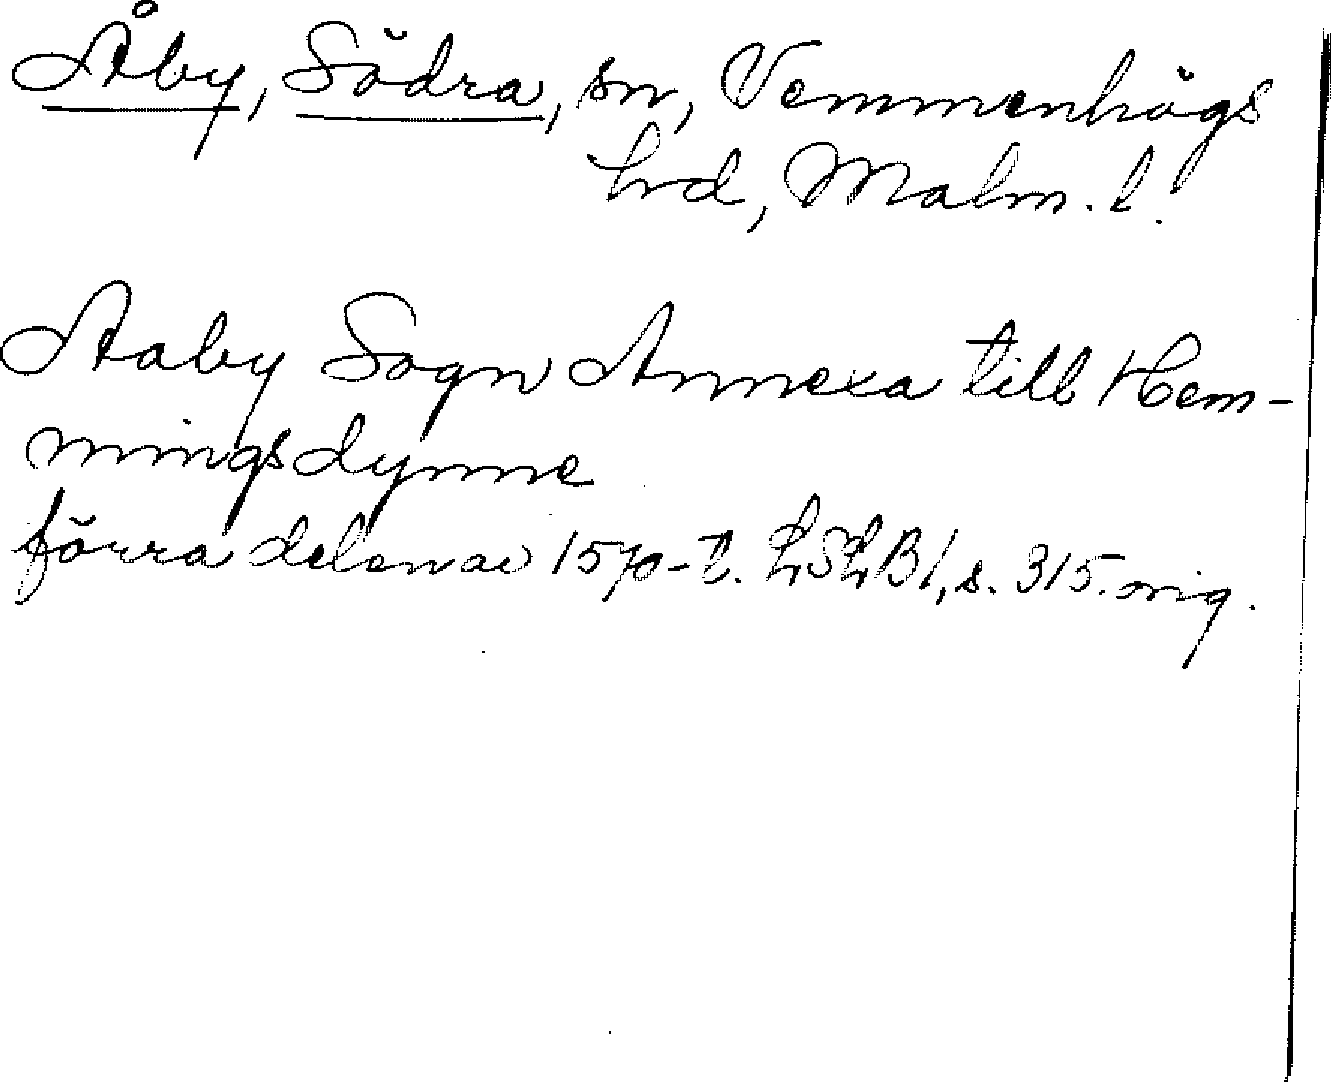 Åby, Södra, sn, Vemmenhögs
hrd, Malm. l.
Aaby Sogn Annexa till Hem-
mingsdynne
förra delen av 1570-t. LSLB 1, s. 315. orig.